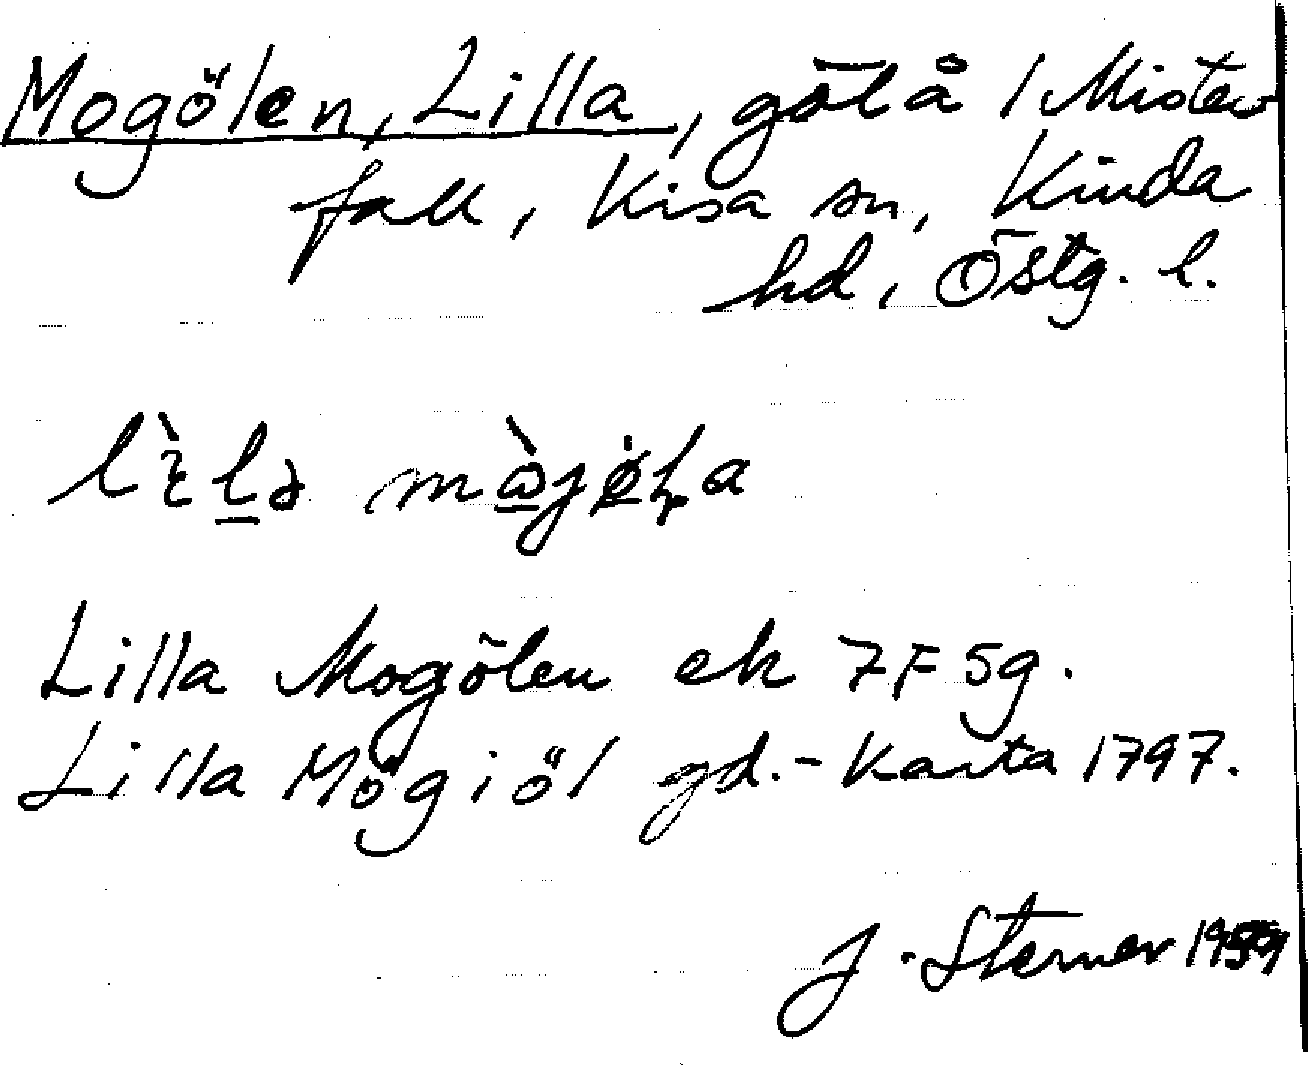 Mogölen, Lilla, göl å / Mister
fall, Kisa sn, Kinda
hd, Östg. l.
Lilla Mogölen ek 7F5g.
Lilla Mögiöl gd.-Karta 1797.
J. Sterner